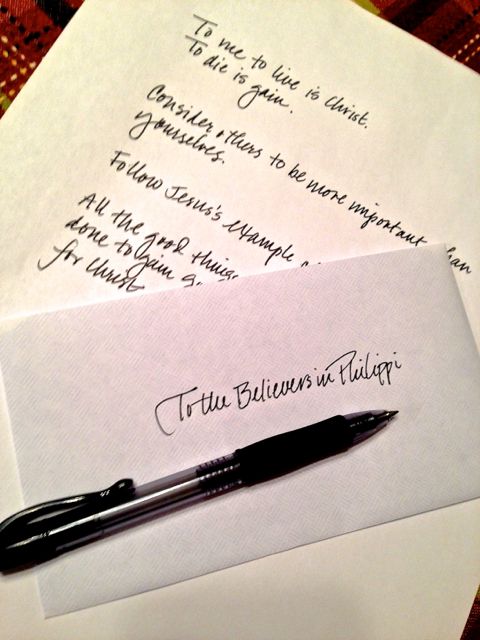 To me to live is Christ.
To die is gain.
Consider others to be more important than
yourselves.
Follow Jesus's example
All the good things
done to gain
for Christ
To the Believers in Philippi